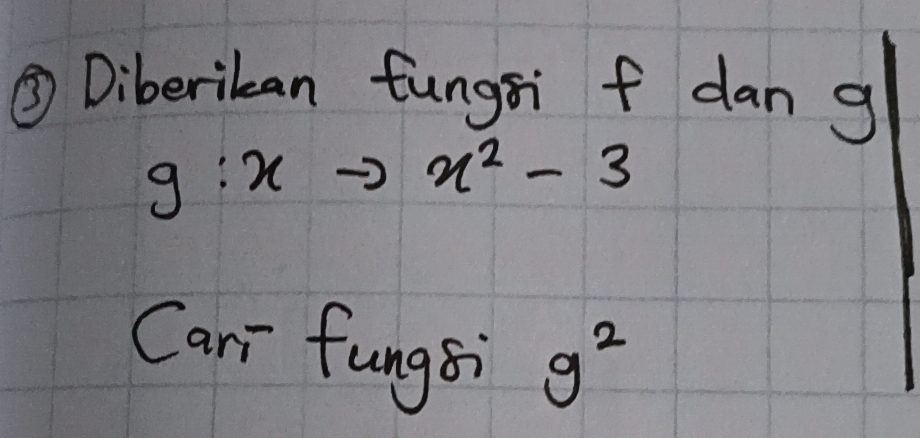 ③ Diberikan fungsi f dan g
g : x → x² - 3
Cari fungsi g²